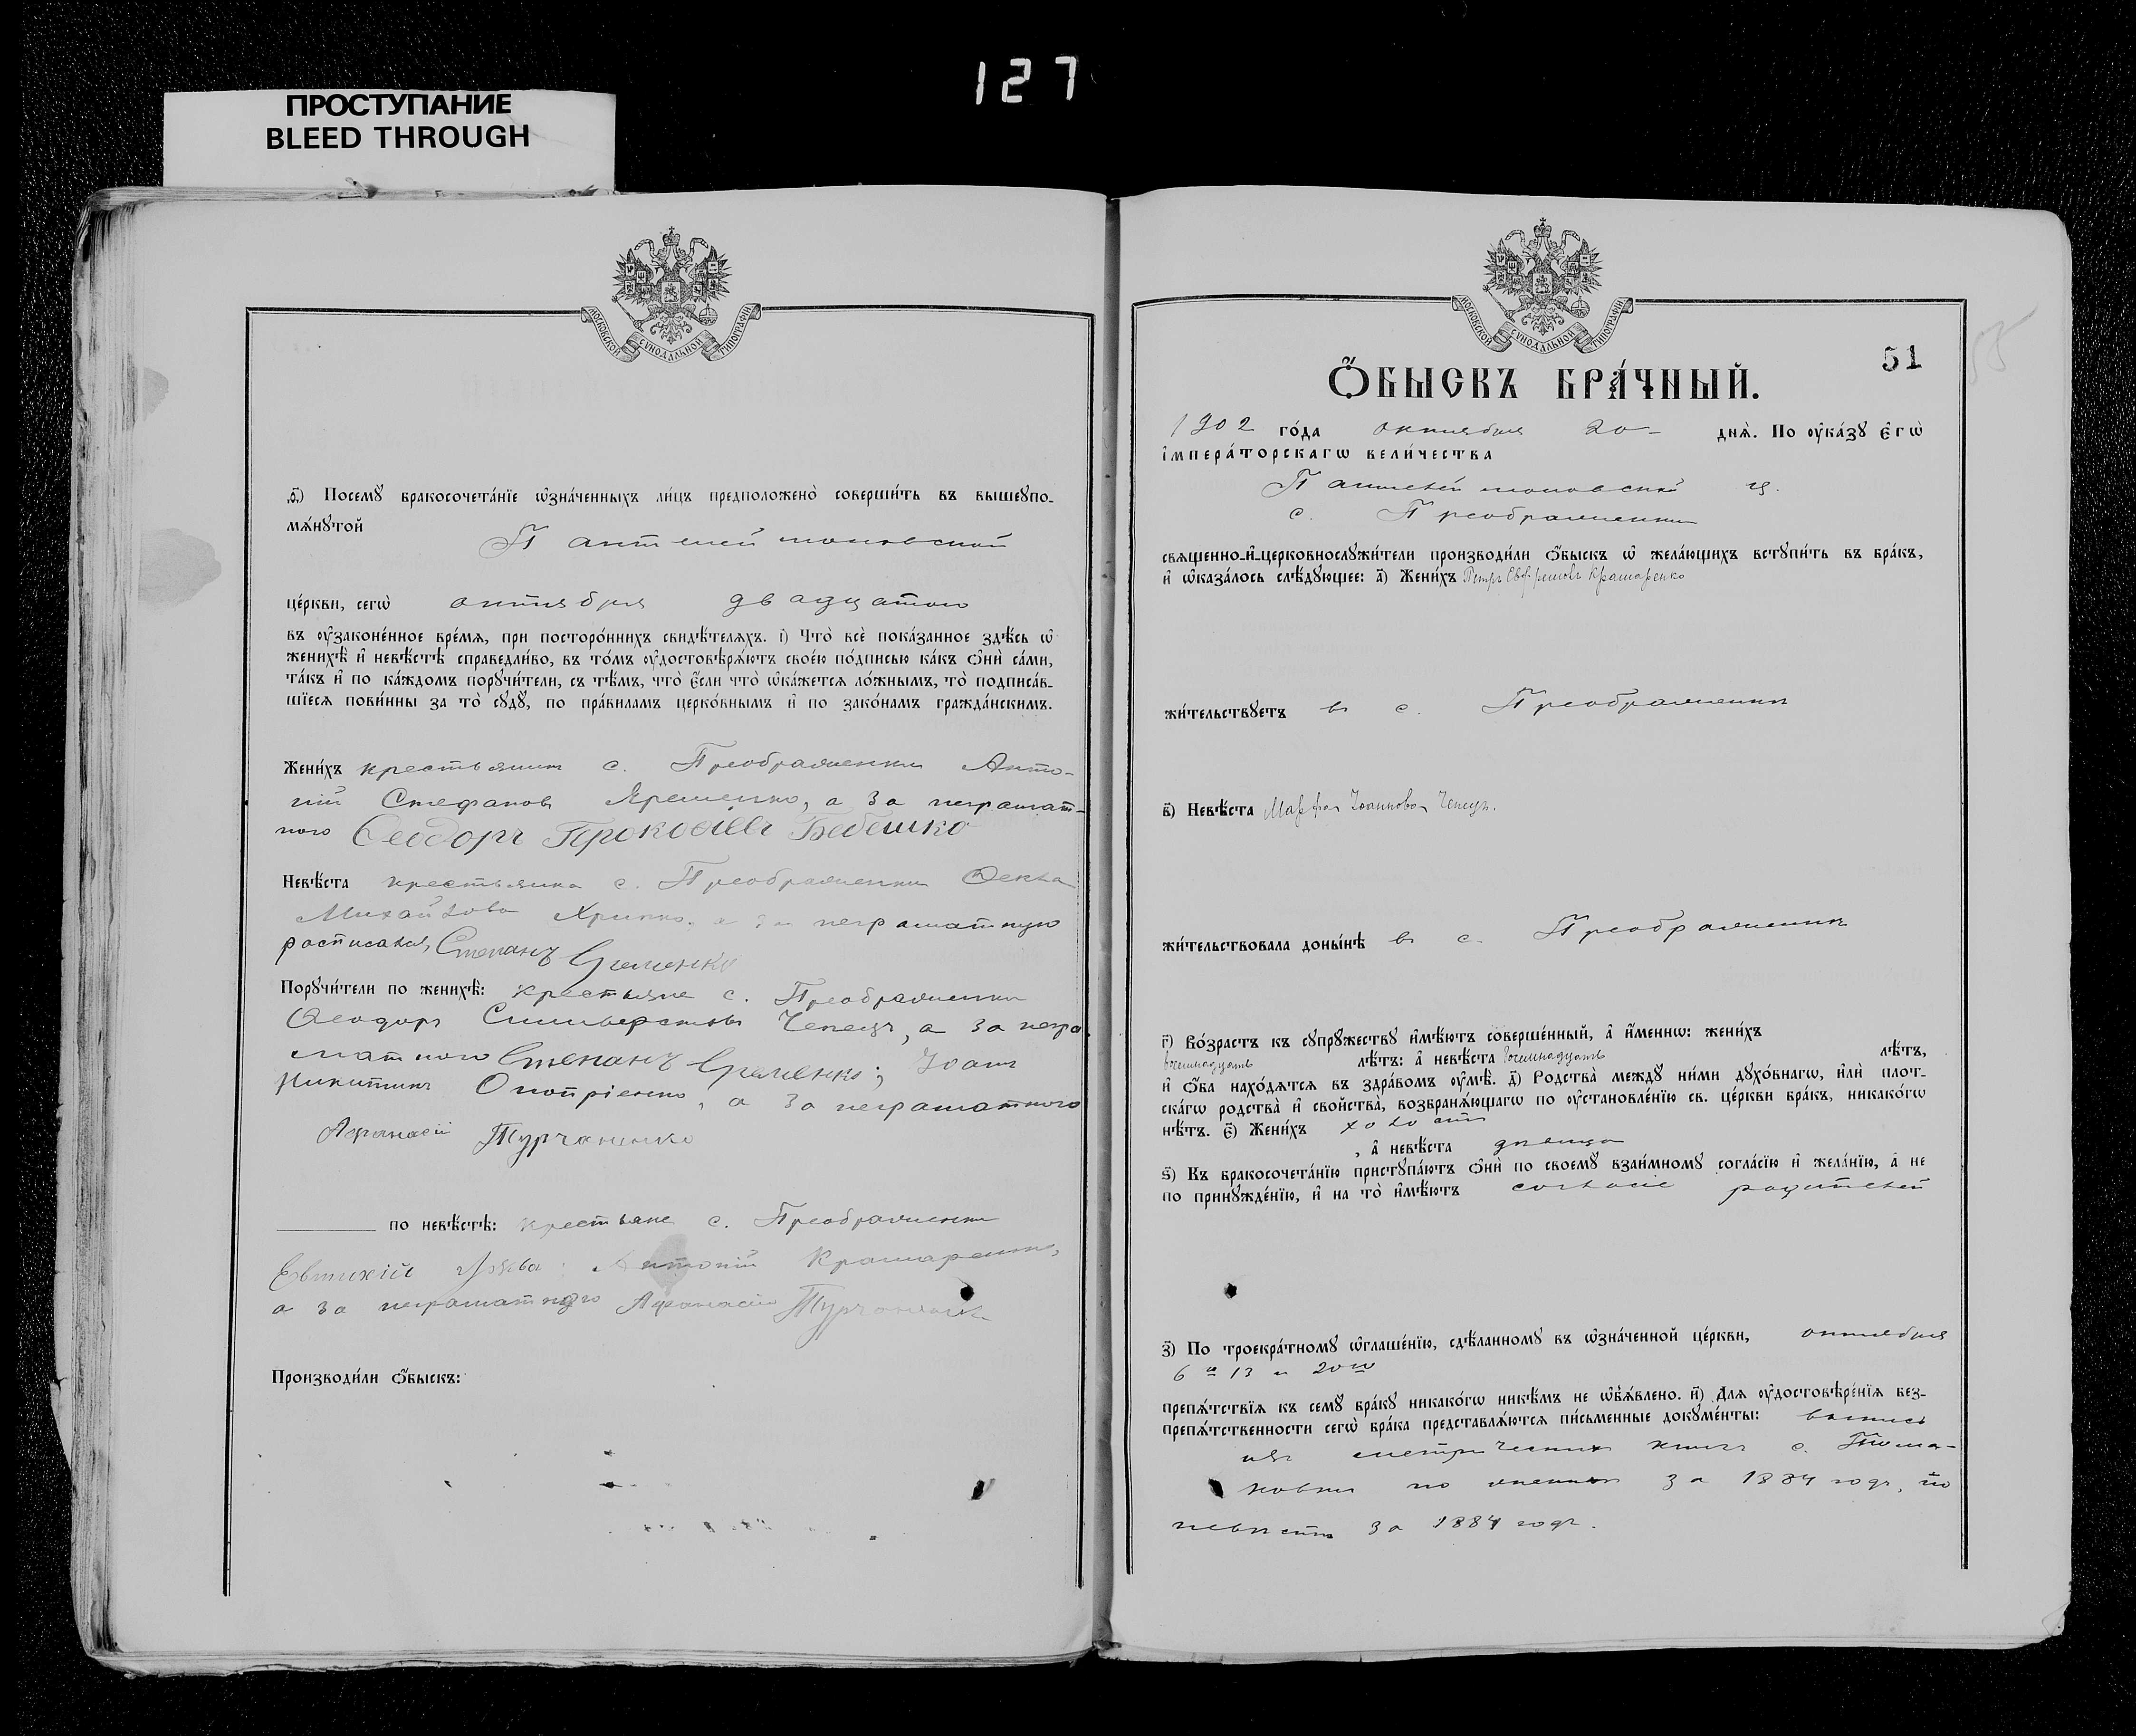 127
ПРОСТУПАНИЕ
BLEED THROUGH
МОСКОВСКОЙ СѴНОДАЛЬНОЙ ТИПОГРАФІИ
ѳ҃) Посемꙋ̀ бракосочета́нїе ѡ҆зна́ченныхъ ли́цъ предположено̀ соверши́ть въ вышеꙋпо-
мѧ́нꙋтой
Пантелеймоновской
це́ркви, сегѡ̀ октября двадцатого
въ ᲂу҆зако́ненное вре́мѧ, при посторо́ннихъ свидѣ́телѧхъ. і҃) Что̀ всѐ пока́занное здѣ́сь ѡ҆
женихѣ̀ и҆ невѣ́стѣ справедли́во, въ то́мъ ᲂу҆достовѣрѧ́ютъ свое́ю по́дписью ка́къ ѻ҆нѝ са́ми,
та́къ и҆ по ка́ждомъ порꙋчи́тели, съ тѣ́мъ, что̀ є҆́сли что̀ ѡ҆ка́жетсѧ ло́жнымъ, то̀ подписа́в-
шїесѧ пови́нны за то̀ сꙋдꙋ̀, по пра́виламъ церко́внымъ и҆ по зако́намъ гражда́нскимъ.
Жени́хъ крестьянин с. Преображенки Анто-
ній Стефанов Яременко, а за неграмат-
ного Ѳеодоръ Прокофіевъ Бебешко
Невѣ́ста крестьянка с. Преображенки Ѳекла
Михайлова Хрипко, а за неграматную
росписался, Степанъ Яременко
Порꙋчи́тели по женихѣ̀: крестьяне с. Преображенки
Ѳеодоръ Сильверстовъ Чепецъ, а за негра
матного Степанъ Яременко; Іоан
Никитинъ Оноприенко, а за неграматного
Афанасій Турчаненко
по невѣ́стѣ: крестьяне с. Преображенки
Евтихій Антоній Крамаренко,
а за неграматного Афанасій Турчаненко
Производи́ли ѻ҆́быскъ:
МОСКОВСКОЙ СѴНОДАЛЬНОЙ ТИПОГРАФІИ
51
55
Ѻ҆́БЫСКЪ БРА́ЧНЫЙ.
1902 го́да октября 20 днѧ̀. По ᲂу҆ка́зꙋ Є҆гѡ̀
і҆мпера́торскагѡ вели́чества
Пантелеймоновской ц.
с. Преображенки
свѧщенно-и҆-церковнослꙋжи́тели производи́ли ѻ҆́быскъ ѡ҆ жела́ющихъ встꙋпи́ть въ бра́къ,
и҆ ѡ҆каза́лось слѣ́дꙋющее: а҃) Жени́хъ Петръ Крамаренко
жи́тельствꙋетъ в с. Преображенки
в҃) Невѣ́ста Марфа Іоаннова Чепецъ.
жи́тельствовала доны́нѣ в с. Преображенки
г҃) Во́зрастъ къ сꙋпрꙋ́жествꙋ и҆мѣ́ютъ соверше́нный, а҆ и҆́меннѡ: жени́хъ
восемнадцать лѣ́тъ: а҆ невѣ́ста восемнадцать лѣ́тъ,
и҆ ѻ҆́ба нахо́дѧтсѧ въ здра́вомъ ᲂу҆мѣ̀. д҃) Родства̀ междꙋ̀ ни́ми дꙋхо́внагѡ, и҆лѝ плот-
ска́гѡ родства̀ и҆ свойства̀, возбранѧ́ющагѡ по ᲂу҆становле́нїю св. це́ркви бра́къ, никако́гѡ
нѣ́тъ. є҃) Жени́хъ холост
, а҆ невѣ́ста дѣвица
ѕ҃) Къ бракосочета́нїю пристꙋпа́ютъ ѻ҆нѝ по своемꙋ̀ взаи́мномꙋ согла́сїю и҆ жела́нїю, а҆ не
по принꙋжде́нїю, и҆ на то̀ и҆мѣ́ютъ согласіе родителей
з҃) По троекра́тномꙋ ѡ҆глаше́нїю, сдѣ́ланномꙋ въ ѡ҆зна́ченной це́ркви, октября
6 го 13 и 20 го
препѧ́тствїѧ къ семꙋ̀ бра́кꙋ никако́гѡ никѣ́мъ не ѡ҆б̾ѧ́влено. и҃) Длѧ ᲂу҆достовѣре́нїѧ без-
препѧ́тственности сегѡ̀ бра́ка представлѧ́ютсѧ пи́сьменные докꙋме́нты: выпись
из метрических книг с.
по жениху за 1884 годъ, по
невѣсте за 1884 годъ.